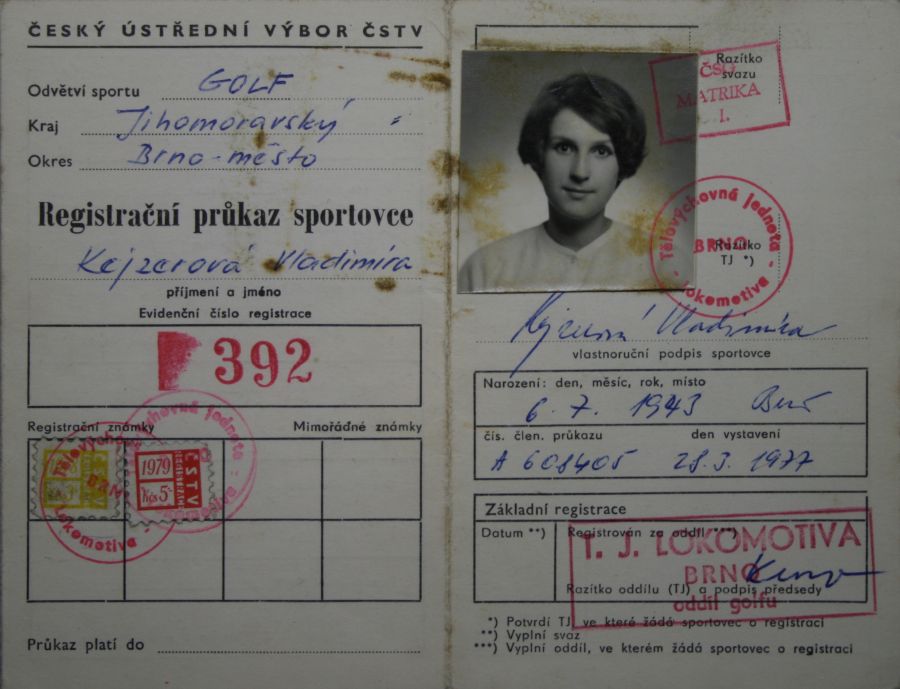 ČESKÝ ÚSTŘEDNÍ VÝBOR ČSTV
Odvětví sportu GOLF
Kraj Jihomoravský
Okres Brno-město
Registrační průkaz sportovce
Kejzerová Vladimíra
příjmení a jméno
Evidenční číslo registrace
392
Registrační známky Mimořádné známky
Tělovýchovná jednota
Lokomotiva
Tělovýchovná jednota
Lokomotiva
1979
Kčs 5-
ČSTV
Průkaz platí do
Razítko
svazu
MATRIKA
I.
Tělovýchovná jednota
BRNO
Lokomotiva
Razítko
TJ *)
Vladimíra
vlastnoruční podpis sportovce
Narození: den, měsíc, rok, místo
6. 7. 1943
čís. člen. průkazu den vystavení
A 608405 28.3. 1977
Základní registrace
Datum **) Registrován za oddíl ***)
T. J. LOKOMOTIVA
BRNO
Razítko oddílu (TJ) a podpis předsedy
oddíl golfu
*) Potvrdí TJ, ve které žádá sportovec o registraci
**) Vyplní svaz
***) Vyplní oddíl, ve kterém žádá sportovec o registraci